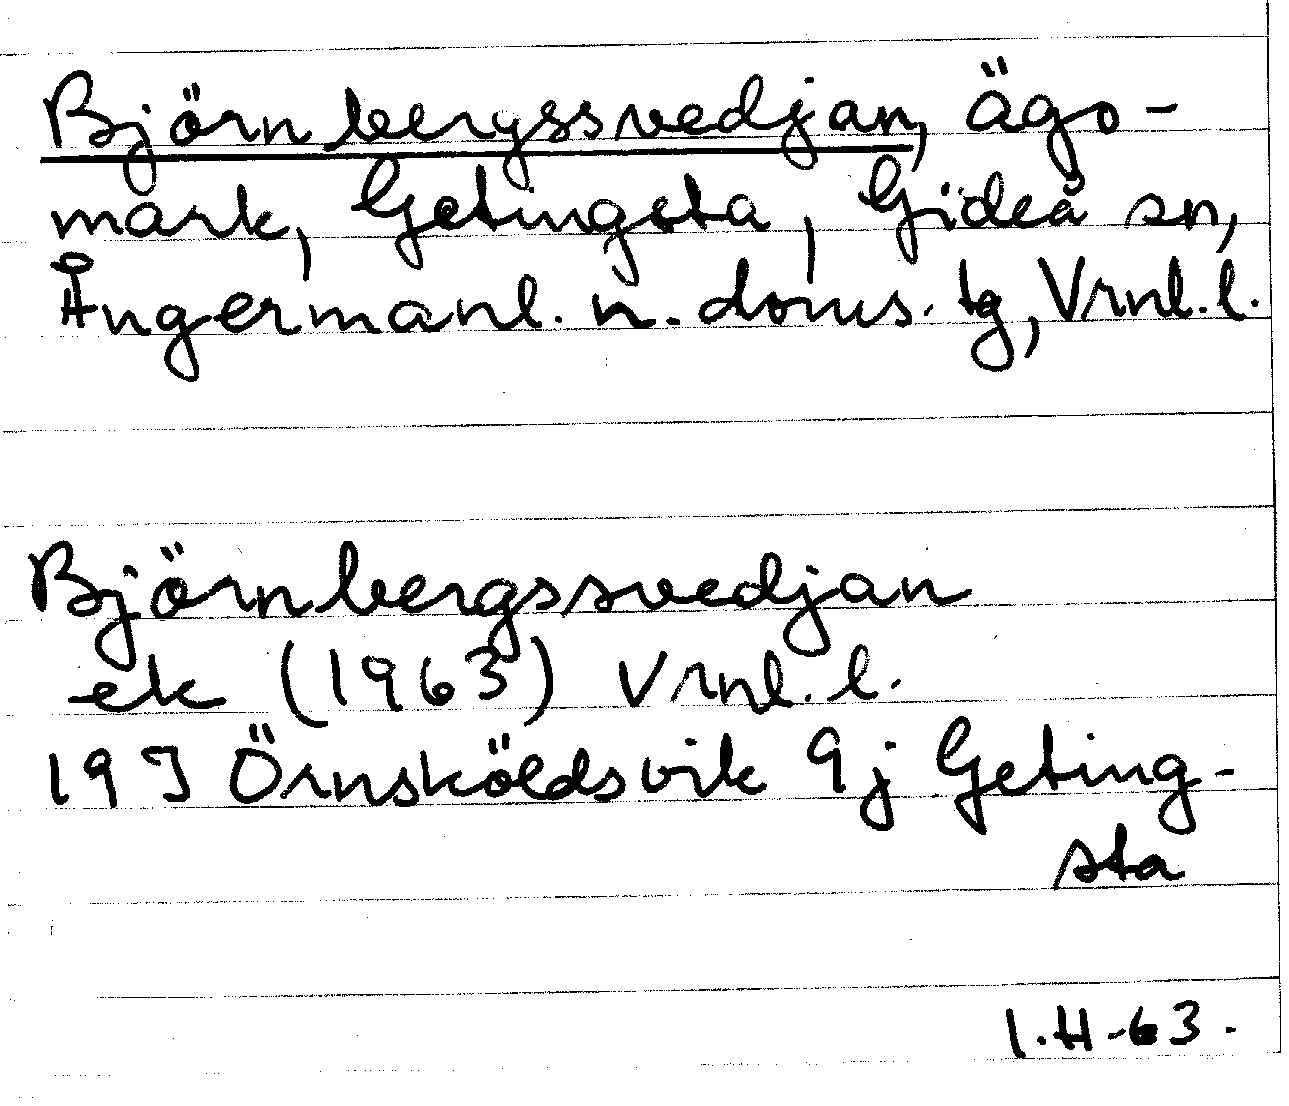 Björnbergssvedjan, ägo-
mark, Getingsta, Gideå sn,
Ångermanl. n. doms. tg, Vrnl. l.
Björnbergssvedjan
ek (1963) Vrnl. l.
19 J Örnsköldsvik 9j Geting-
sta
I.H-63.